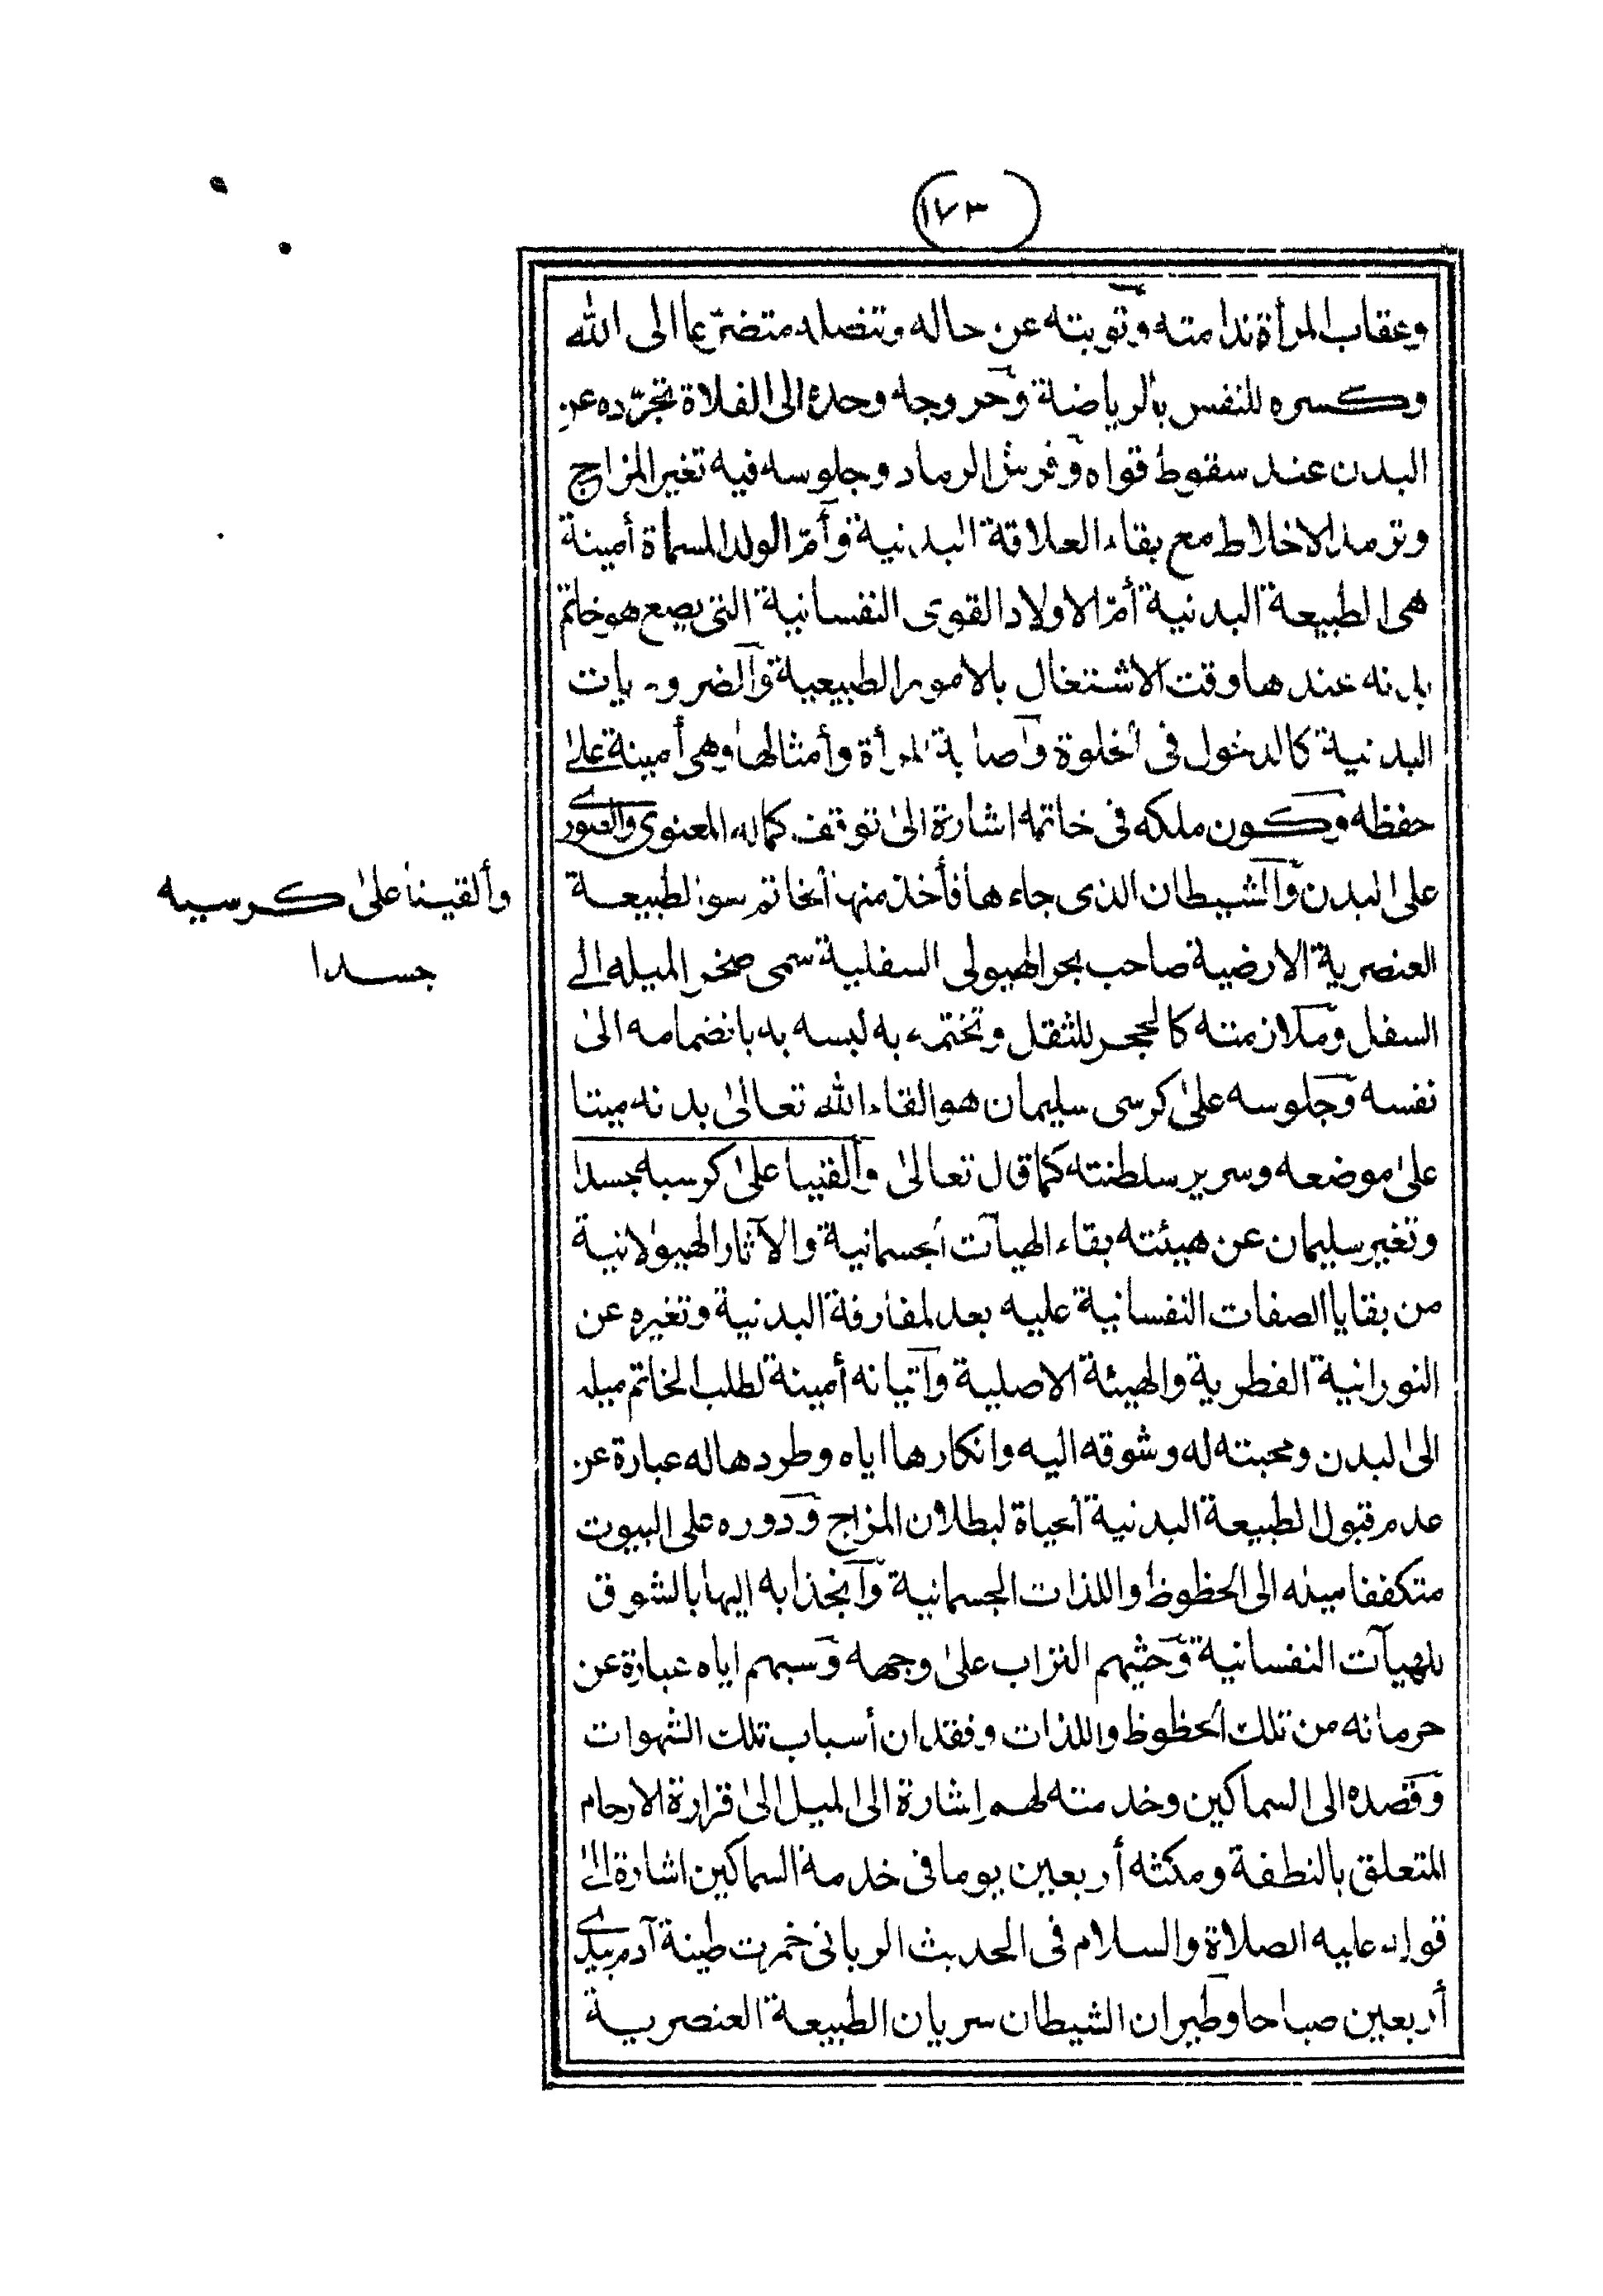 (١٧٣)
وعقاب المرأة ندامته وتوبته عن حاله وتنصله متضرّعا الى الله
وكسره للنفس بالرياضة وخروجه وحده الى الفلاة تجرّده عن
البدن عند سقوط قواه وفرش الرماد وجلوسه فيه تغير المزاج
وترمد الاخلاط مع بقاء العلاقة البدنية وأمّ الولد المسماة أمينة
هى الطبيعة البدنية أمّ الاولاد القوى النفسانية التى يضع هو خاتم
بدنه عندها وقت الاشتغال بالامور الطبيعية والضروريات
البدنية كالدخول فى الخلوة واصابة المرأة وأمثالها وهى أمينة على
حفظه وكون ملكه فى خاتمه اشارة الى توقف كماله المعنوى والصورى
على البدن والشيطان الذى جاءها فأخذ منها الخاتم سور الطبيعة
العنصرية الارضية صاحب بحر الهيولى السفلية سمى صخر الميله الى
السفل وملازمته كالحجر للثقل وتختمه به لبسه به بانضمامه الى
نفسه وجلوسه على كرسى سليمان هو القاء الله تعالى بدنه ميتا
على موضعه وسرير سلطنته كما قال تعالى وألقينا على كرسيه جسدا
وتغير سليمان عن هيئته بقاء الهيآت الجسمانية والآثار الهيولانية
من بقايا الصفات النفسانية عليه بعد المفارقة البدنية وتغيره عن
النورانية الفطرية والهيئة الاصلية واتيانه أمينة لطلب الخاتم ميله
الى البدن ومحبته له وشوقه اليه وانكارها اياه وطردها له عبارة عن
عدم قبول الطبيعة البدنية الحياة لبطلان المزاج ودوره على البيوت
متكففا ميله الى الحظوظ واللذات الجسمانية وانجذابه اليها بالشوق
للهيآت النفسانية وحثيهم التراب على وجهه وسبهم اياه عبارة عن
حرمانه من تلك الحظوظ واللذات وفقدان أسباب تلك الشهوات
وقصده الى السماكين وخدمته لهم اشارة الى الميل الى قرارة الارحام
المتعلق بالنطفة ومكثه أربعين يوما فى خدمة السماكين اشارة الى
قوله عليه الصلاة والسلام فى الحديث الربانى خمرت طينة آدم بيدى
أربعين صباحا وطيران الشيطان سريان الطبيعة العنصرية
وألقينا على كرسيه
جسدا